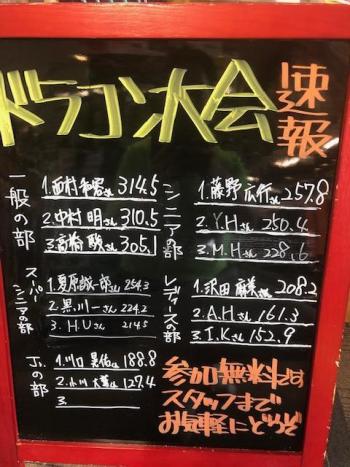 ドラコン大会
速報
一般の部
1.西村和宏さん 314.5
2.中村 明さん 310.5
3.高橋 駿さん 305.1
シニアの部
1.藤野広行さん 257.8
2.Y.Hさん 250.4
3.M.Hさん 228.6
スーパーシニアの部
1.夏原誠一郎さん 254.3
2.黒川一さん 224.2
3.H.Uさん 214.5
レディースの部
1.沢田 さん 208.2
2.A.Hさん 161.3
3.I.Kさん 152.9
Jr.の部
1.川口 くん 188.8
2.小川 くん 127.4
3.
参加無料です
スタッフまで
お気軽にどうぞ